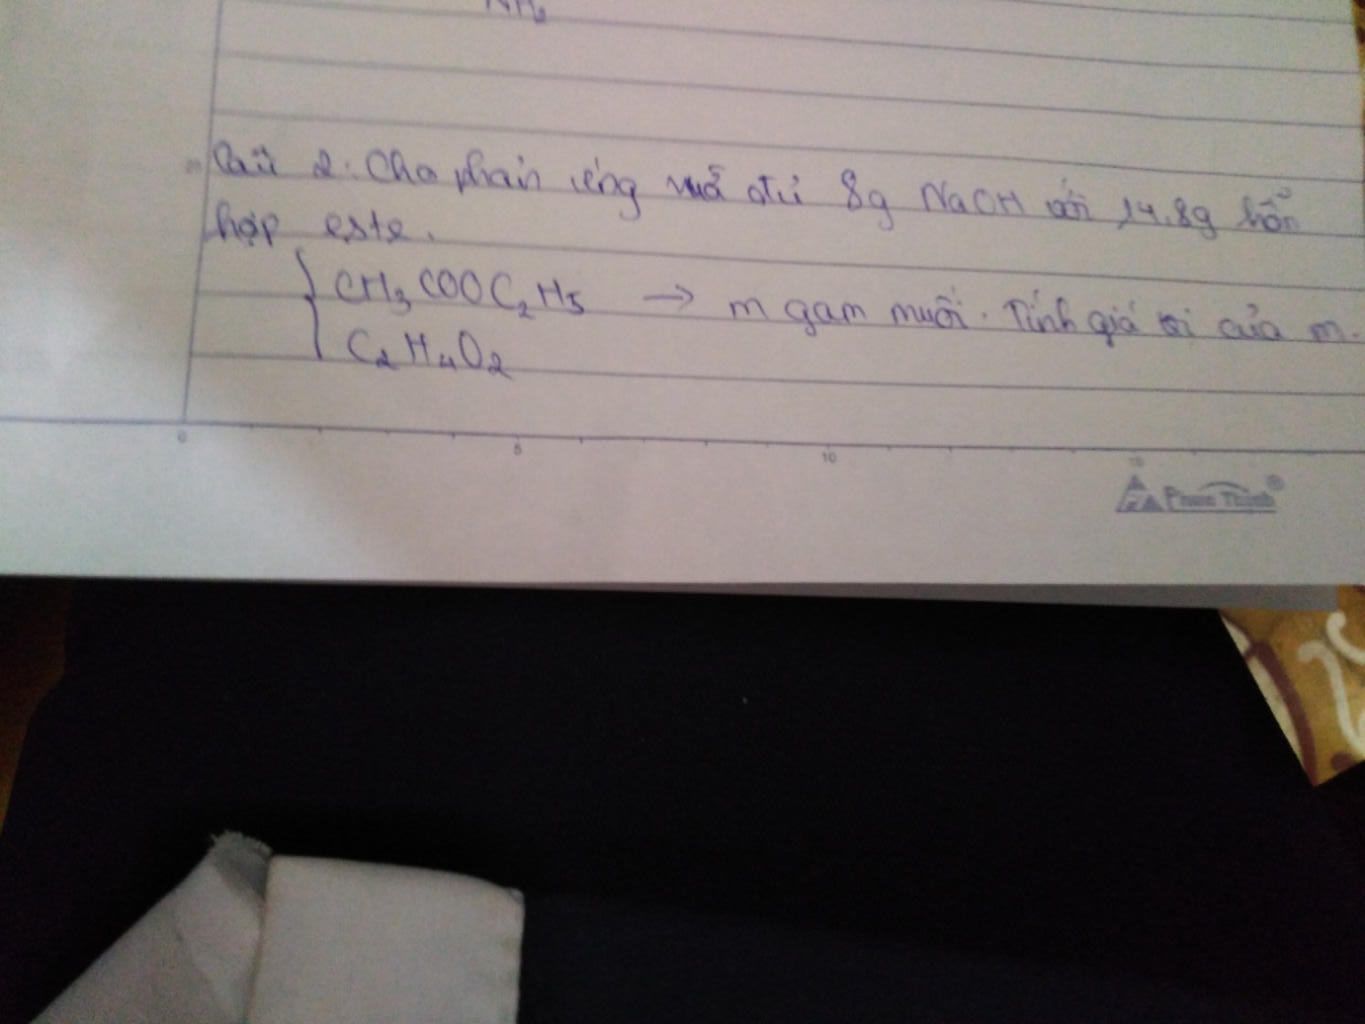 NH2
Câu 2. Cho phản ứng vừa đủ 8g NaOH với 14.8g hỗn
hợp este.
CH3COOC2H5 → m gam muối. Tính giá trị của m.
C2H4O2
0 5 10 15
Phan Thinh®